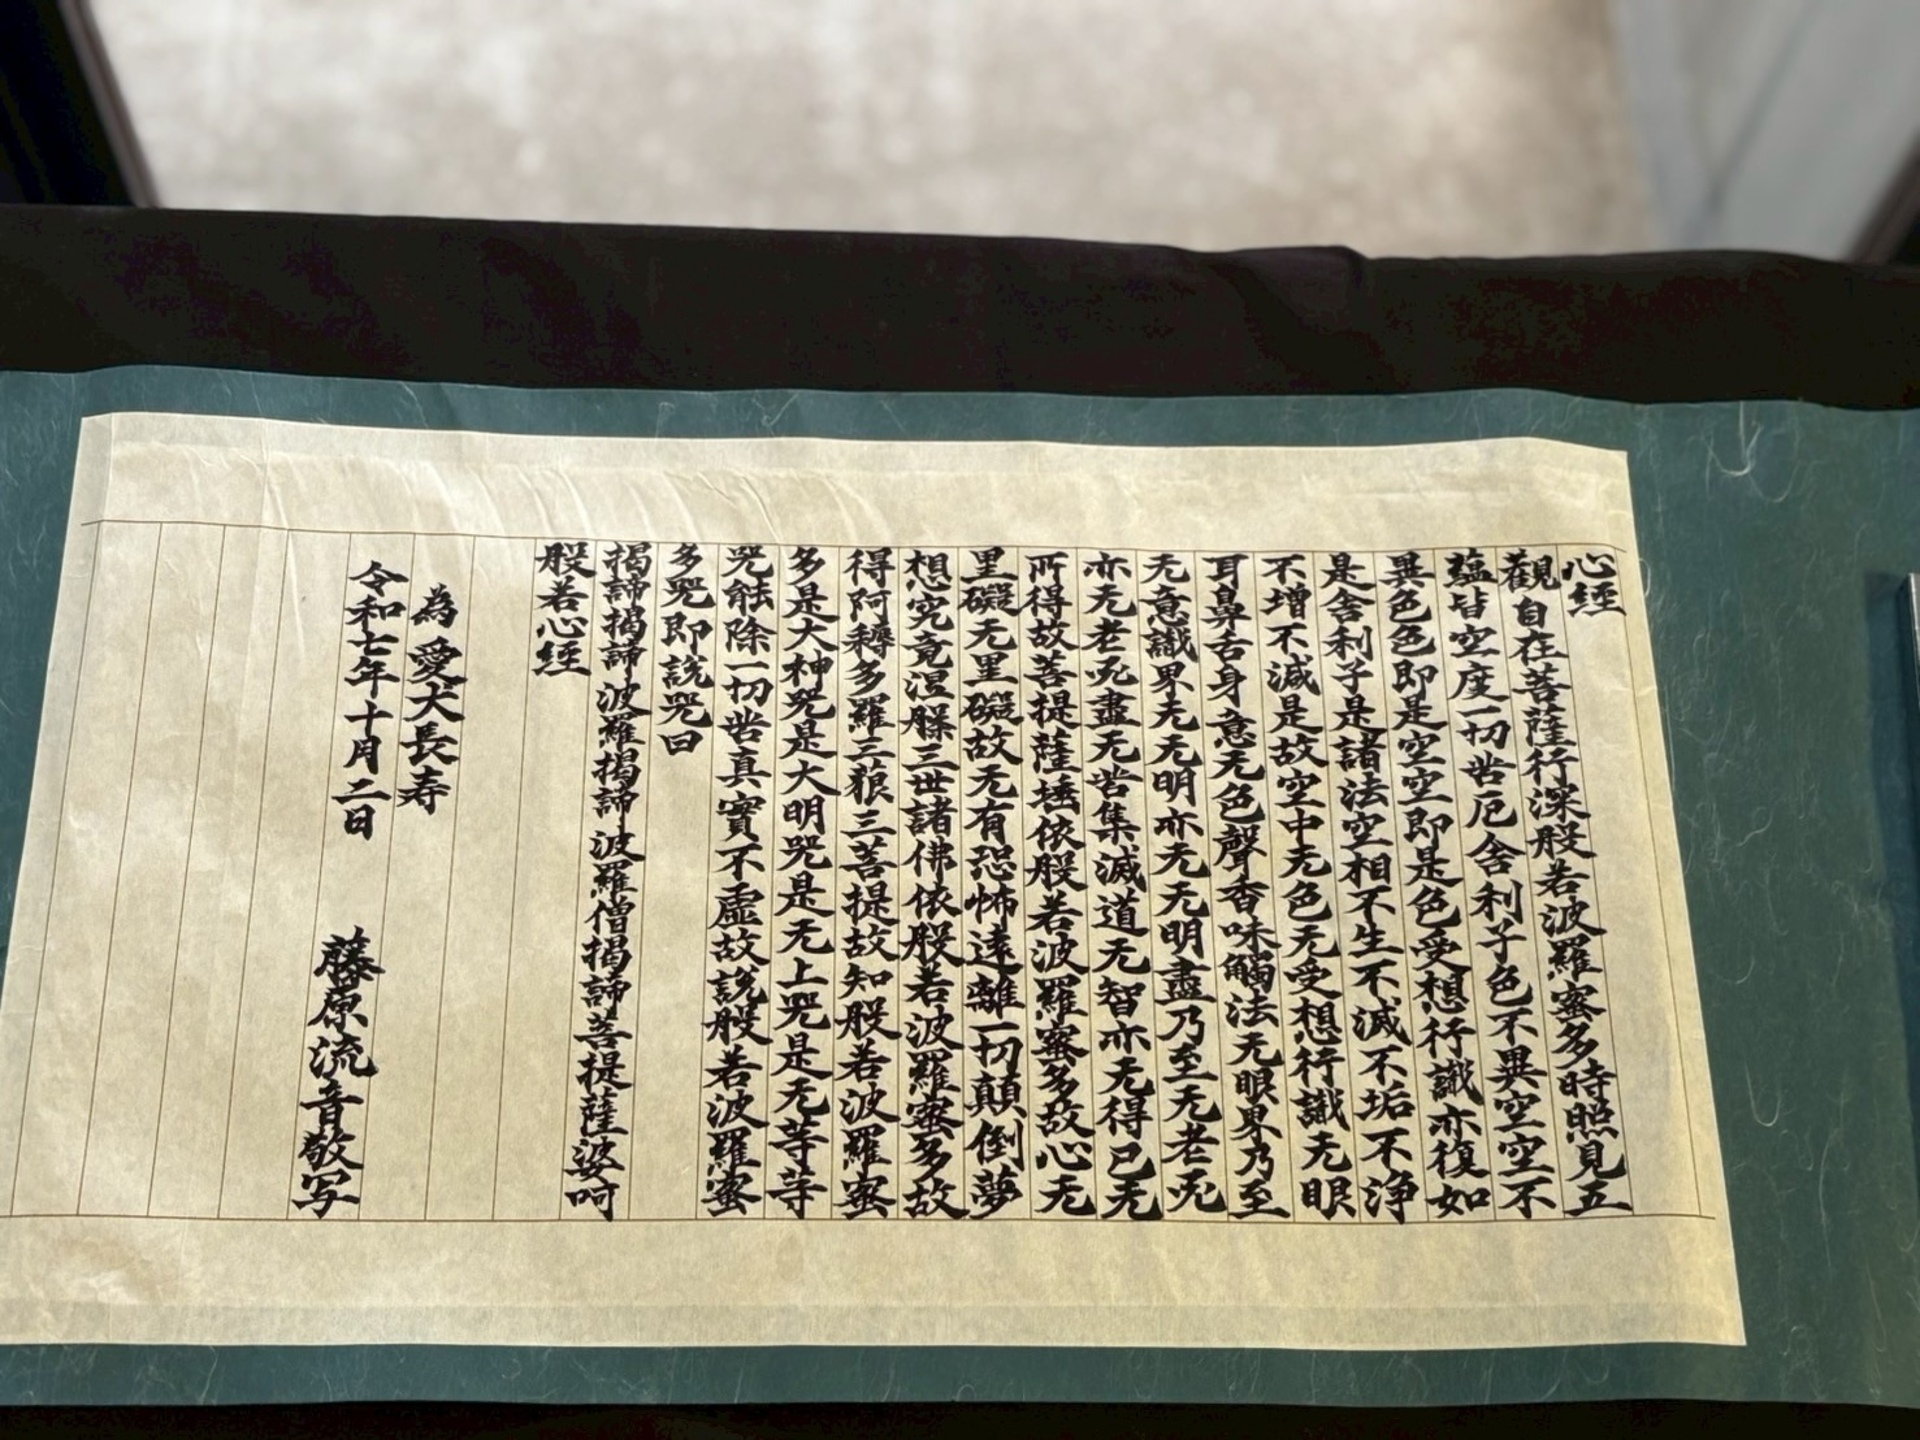 心経
觀自在菩薩行深般若波羅蜜多時照見五
蘊皆空度一切苦厄舎利子色不異空空不
異色色即是空空即是色受想行識亦復如
是舎利子是諸法空相不生不滅不垢不浄
不増不減是故空中无色无受想行識无眼
耳鼻舌身意无色聲香味觸法无眼界乃至
无意識界无无明亦无无明盡乃至无老死
亦无老死盡无苦集滅道无智亦无得已无
所得故菩提薩埵依般若波羅蜜多故心无
罣礙无罣礙故无有恐怖遠離一切顛倒夢
想究竟涅槃三世諸佛依般若波羅蜜多故
得阿耨多羅三藐三菩提故知般若波羅蜜
多是大神咒是大明咒是无上咒是无等等
咒能除一切苦真實不虚故説般若波羅蜜
多咒即説咒曰
揭諦揭諦波羅揭諦波羅僧揭諦菩提薩婆呵
般若心経
為愛犬長寿
令和七年十月二日 藤原流音敬写